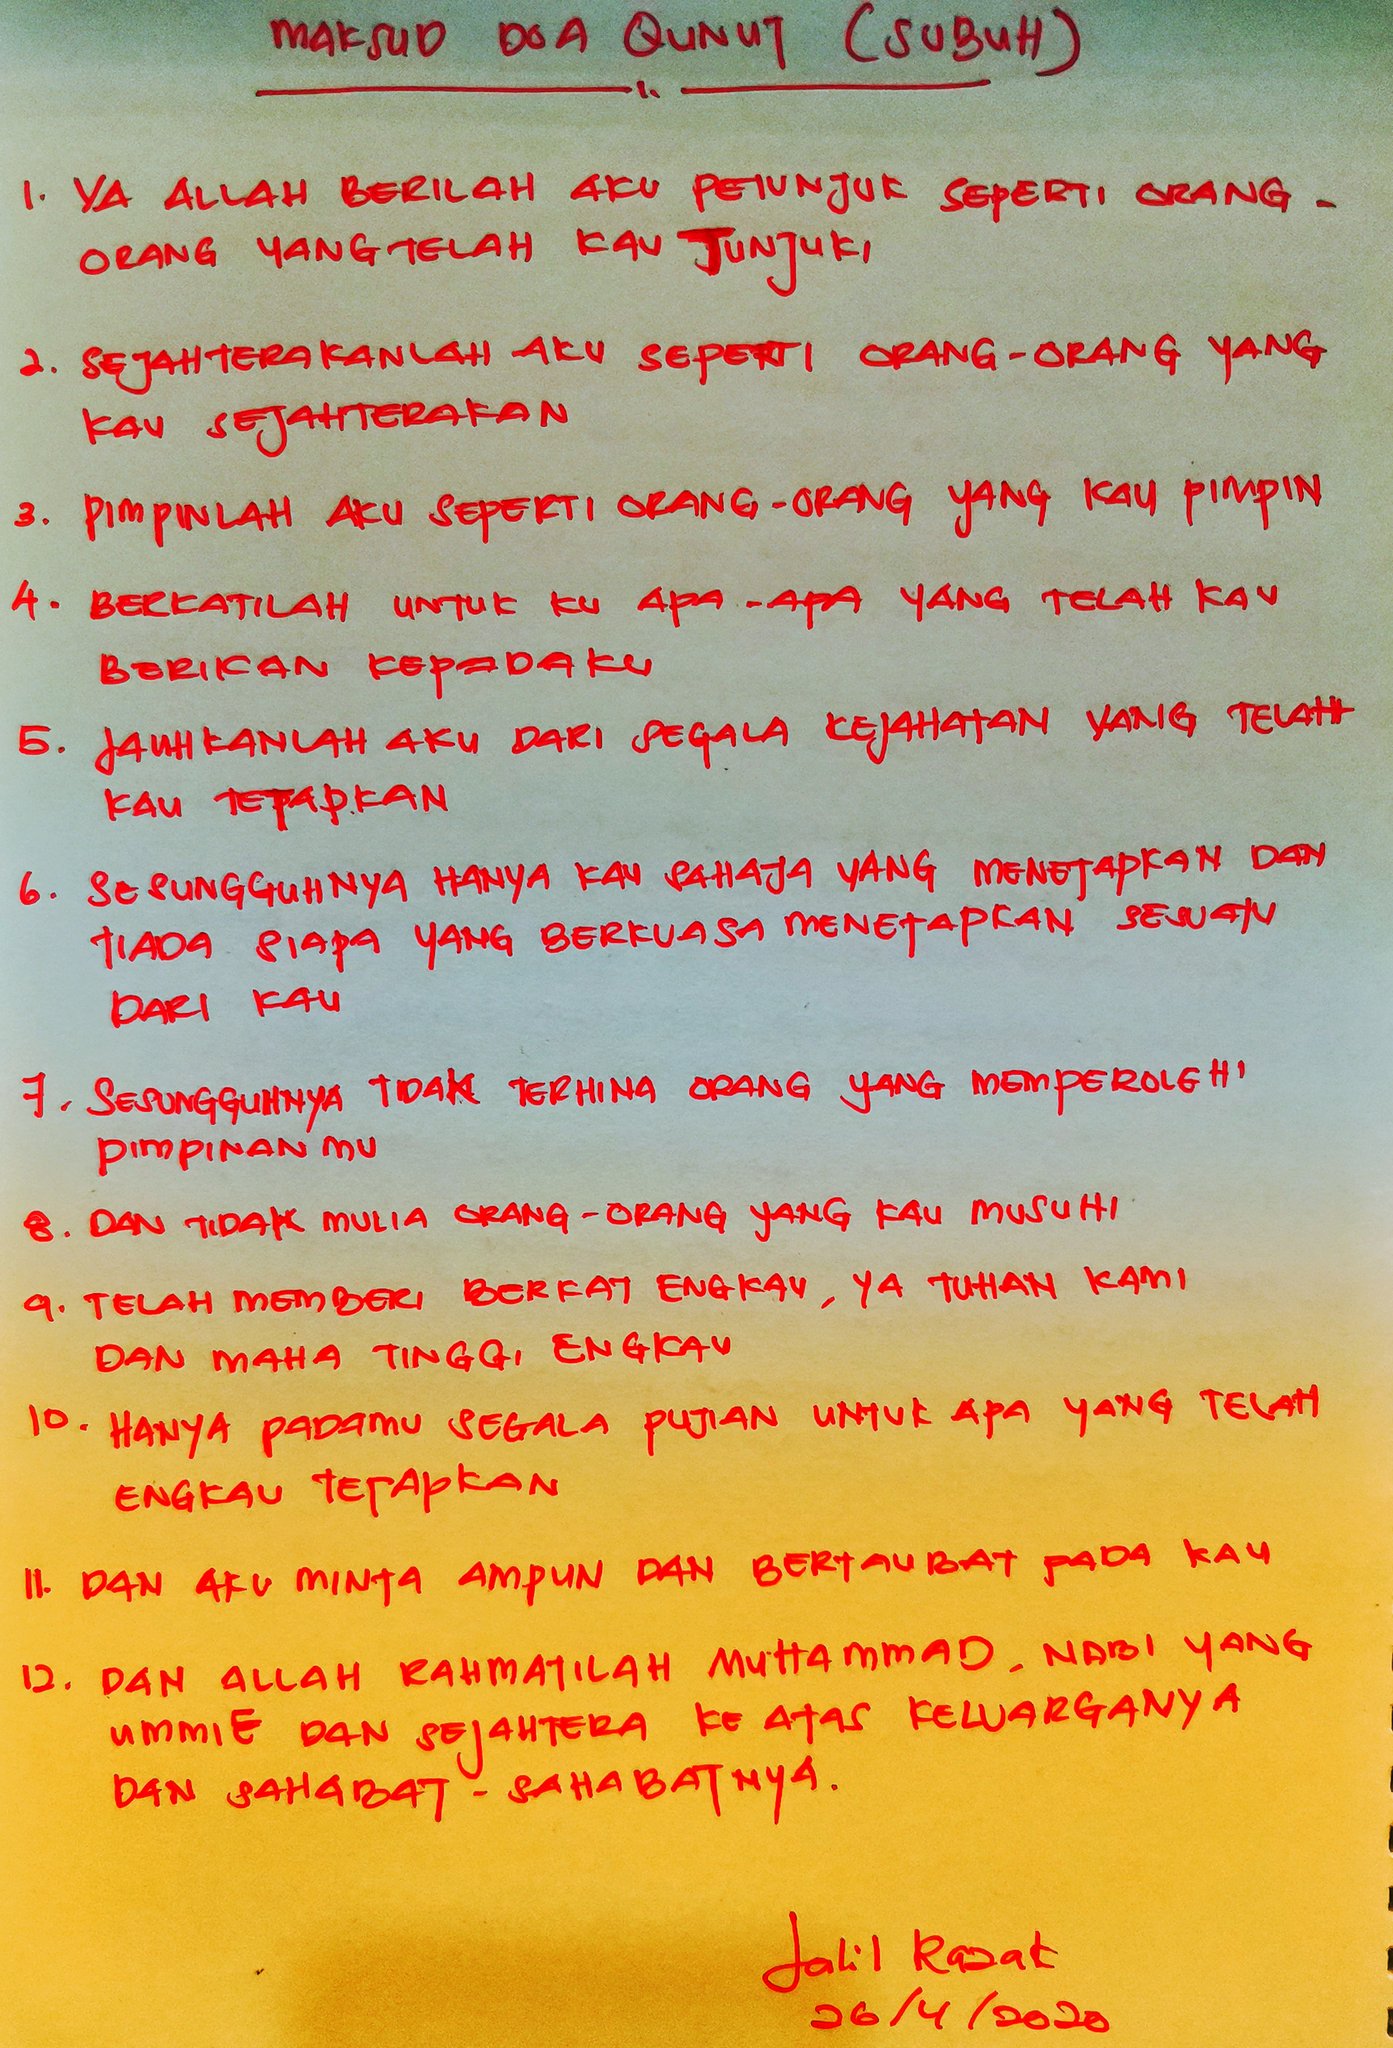 MAKSUD DOA QUNUT (SUBUH)
1. YA ALLAH BERILAH AKU PETUNJUK SEPERTI ORANG -
ORANG YANG TELAH KAU TUNJUKI
2. SEJAHTERAKANLAH AKU SEPERTI ORANG-ORANG YANG
KAU SEJAHTERAKAN
3. PIMPINLAH AKU SEPERTI ORANG-ORANG YANG KAU PIMPIN
4. BERKATILAH UNTUK KU APA-APA YANG TELAH KAU
BERIKAN KEPADAKU
5. JAUHKANLAH AKU DARI SEGALA KEJAHATAN YANG TELAH
KAU TETAPKAN
6. SESUNGGUHNYA HANYA KAU SAHAJA YANG MENETAPKAN DAN
TIADA SIAPA YANG BERKUASA MENETAPKAN SESUATU
DARI KAU
7. SESUNGGUHNYA TIDAK TERHINA ORANG YANG MEMPEROLEHI
PIMPINAN MU
8. DAN TIDAK MULIA ORANG-ORANG YANG KAU MUSUHI
9. TELAH MEMBERI BERKAT ENGKAU, YA TUHAN KAMI
DAN MAHA TINGGI ENGKAU
10. HANYA PADAMU SEGALA PUJIAN UNTUK APA YANG TELAH
ENGKAU TETAPKAN
11. DAN AKU MINTA AMPUN DAN BERTAUBAT PADA KAU
12. DAN ALLAH RAHMATILAH MUHAMMAD, NABI YANG
UMMIE DAN SEJAHTERA KE ATAS KELUARGANYA
DAN SAHABAT-SAHABATNYA.
Jalil Razak
26/4/2020